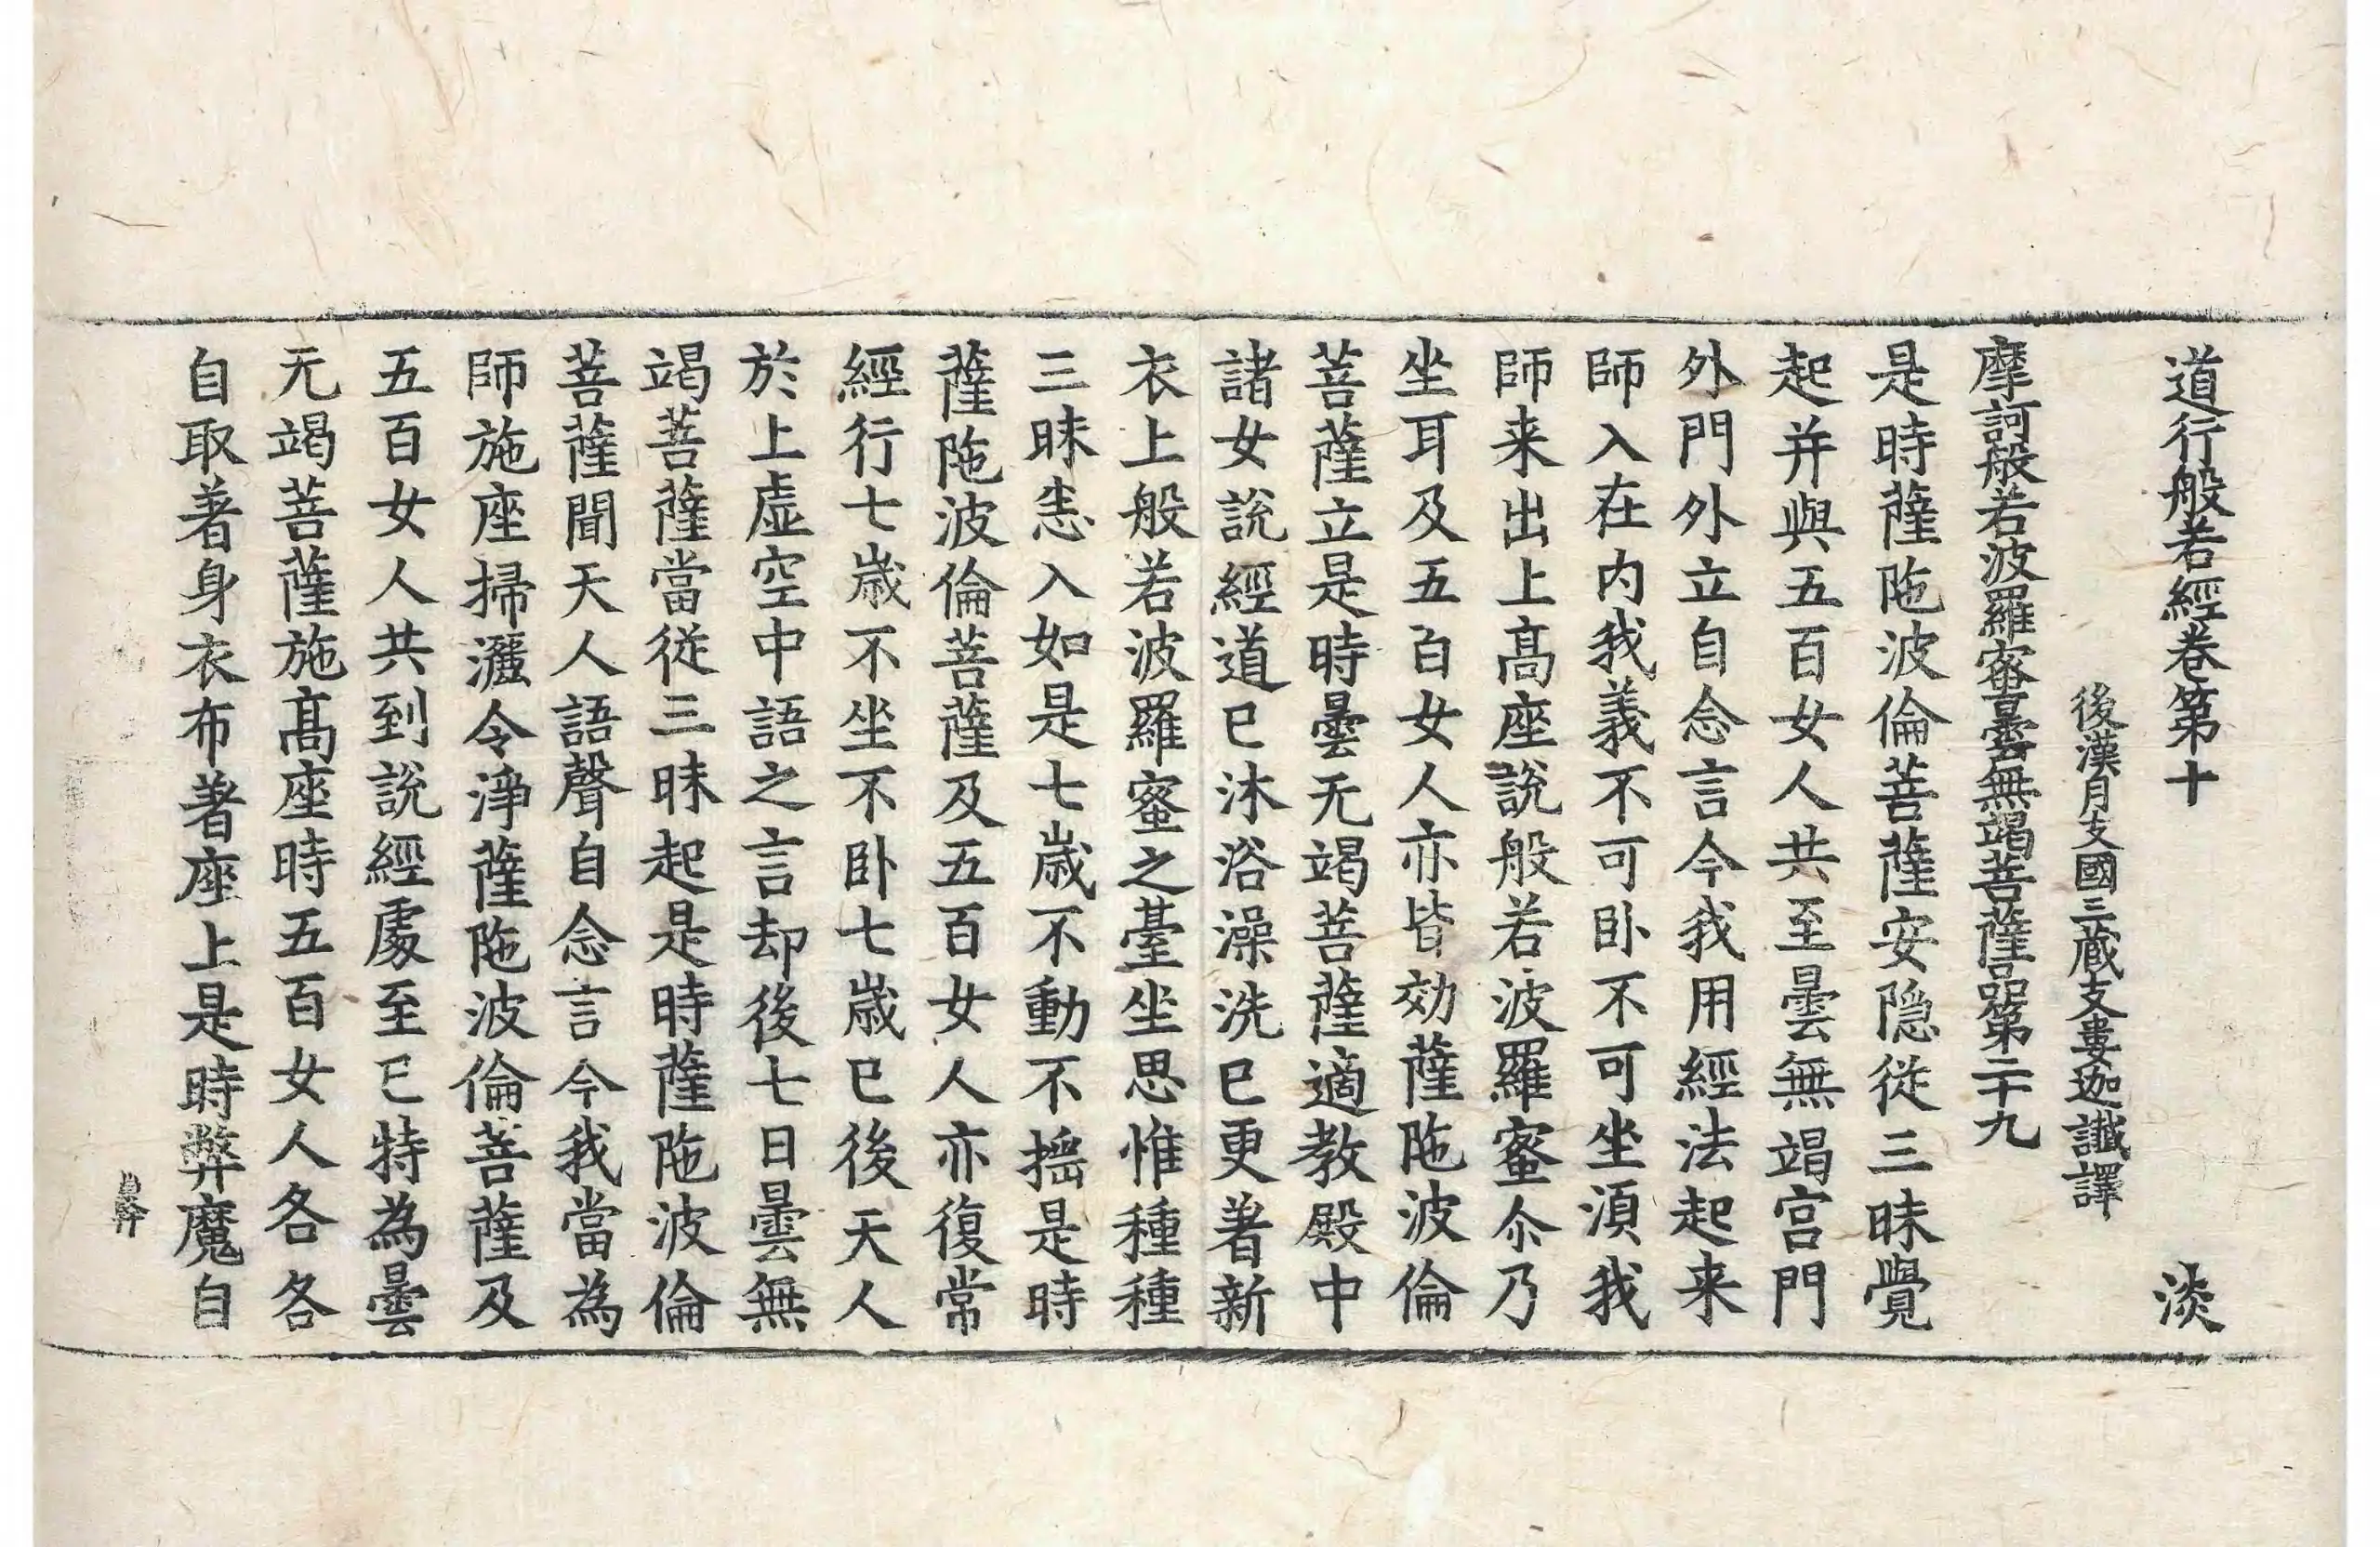 道行般若經卷第十 淡
後漢月支國三藏支婁迦讖譯
摩訶般若波羅蜜曇無竭菩薩品第二十九
是時薩陁波倫菩薩安隐従三昧覺
起并與五百女人共至曇無竭宫門
外門外立自念言今我用經法起来
師入在内我義不可卧不可坐湏我
師来出上髙座說般若波羅蜜尒乃
坐耳及五百女人亦皆効薩陁波倫
菩薩立是時曇无竭菩薩適教殿中
諸女說經道已沐浴澡洗已更著新
衣上般若波羅蜜之臺坐思惟種種
三昧悉入如是七歳不動不揺是時
薩陁波倫菩薩及五百女人亦復常
經行七歳不坐不卧七歳已後天人
於上虛空中語之言却後七日曇無
竭菩薩當従三昧起是時薩陁波倫
菩薩聞天人語聲自念言今我當為
師施座掃灑令淨薩陁波倫菩薩及
五百女人共到說經處至已特為曇
无竭菩薩施髙座時五百女人各各
自取著身衣布著座上是時弊魔自